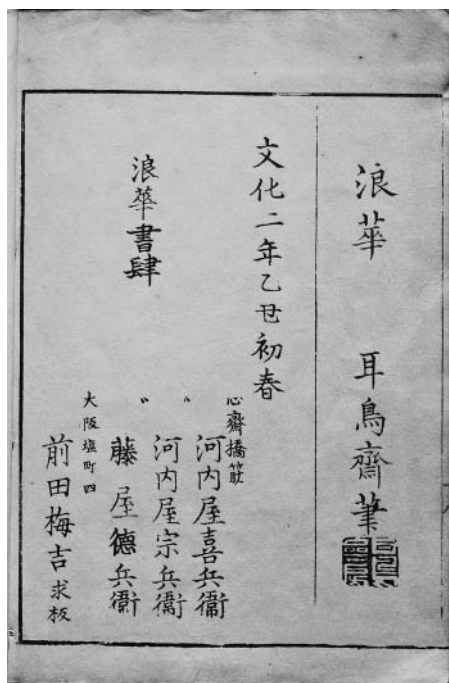 浪華　耳鳥齋筆
文化二年乙丑初春
浪華書肆
心齋橋筋
河内屋喜兵衞
〃
河内屋宗兵衞
〃
藤屋德兵衞
大阪塩町四
前田梅吉求板